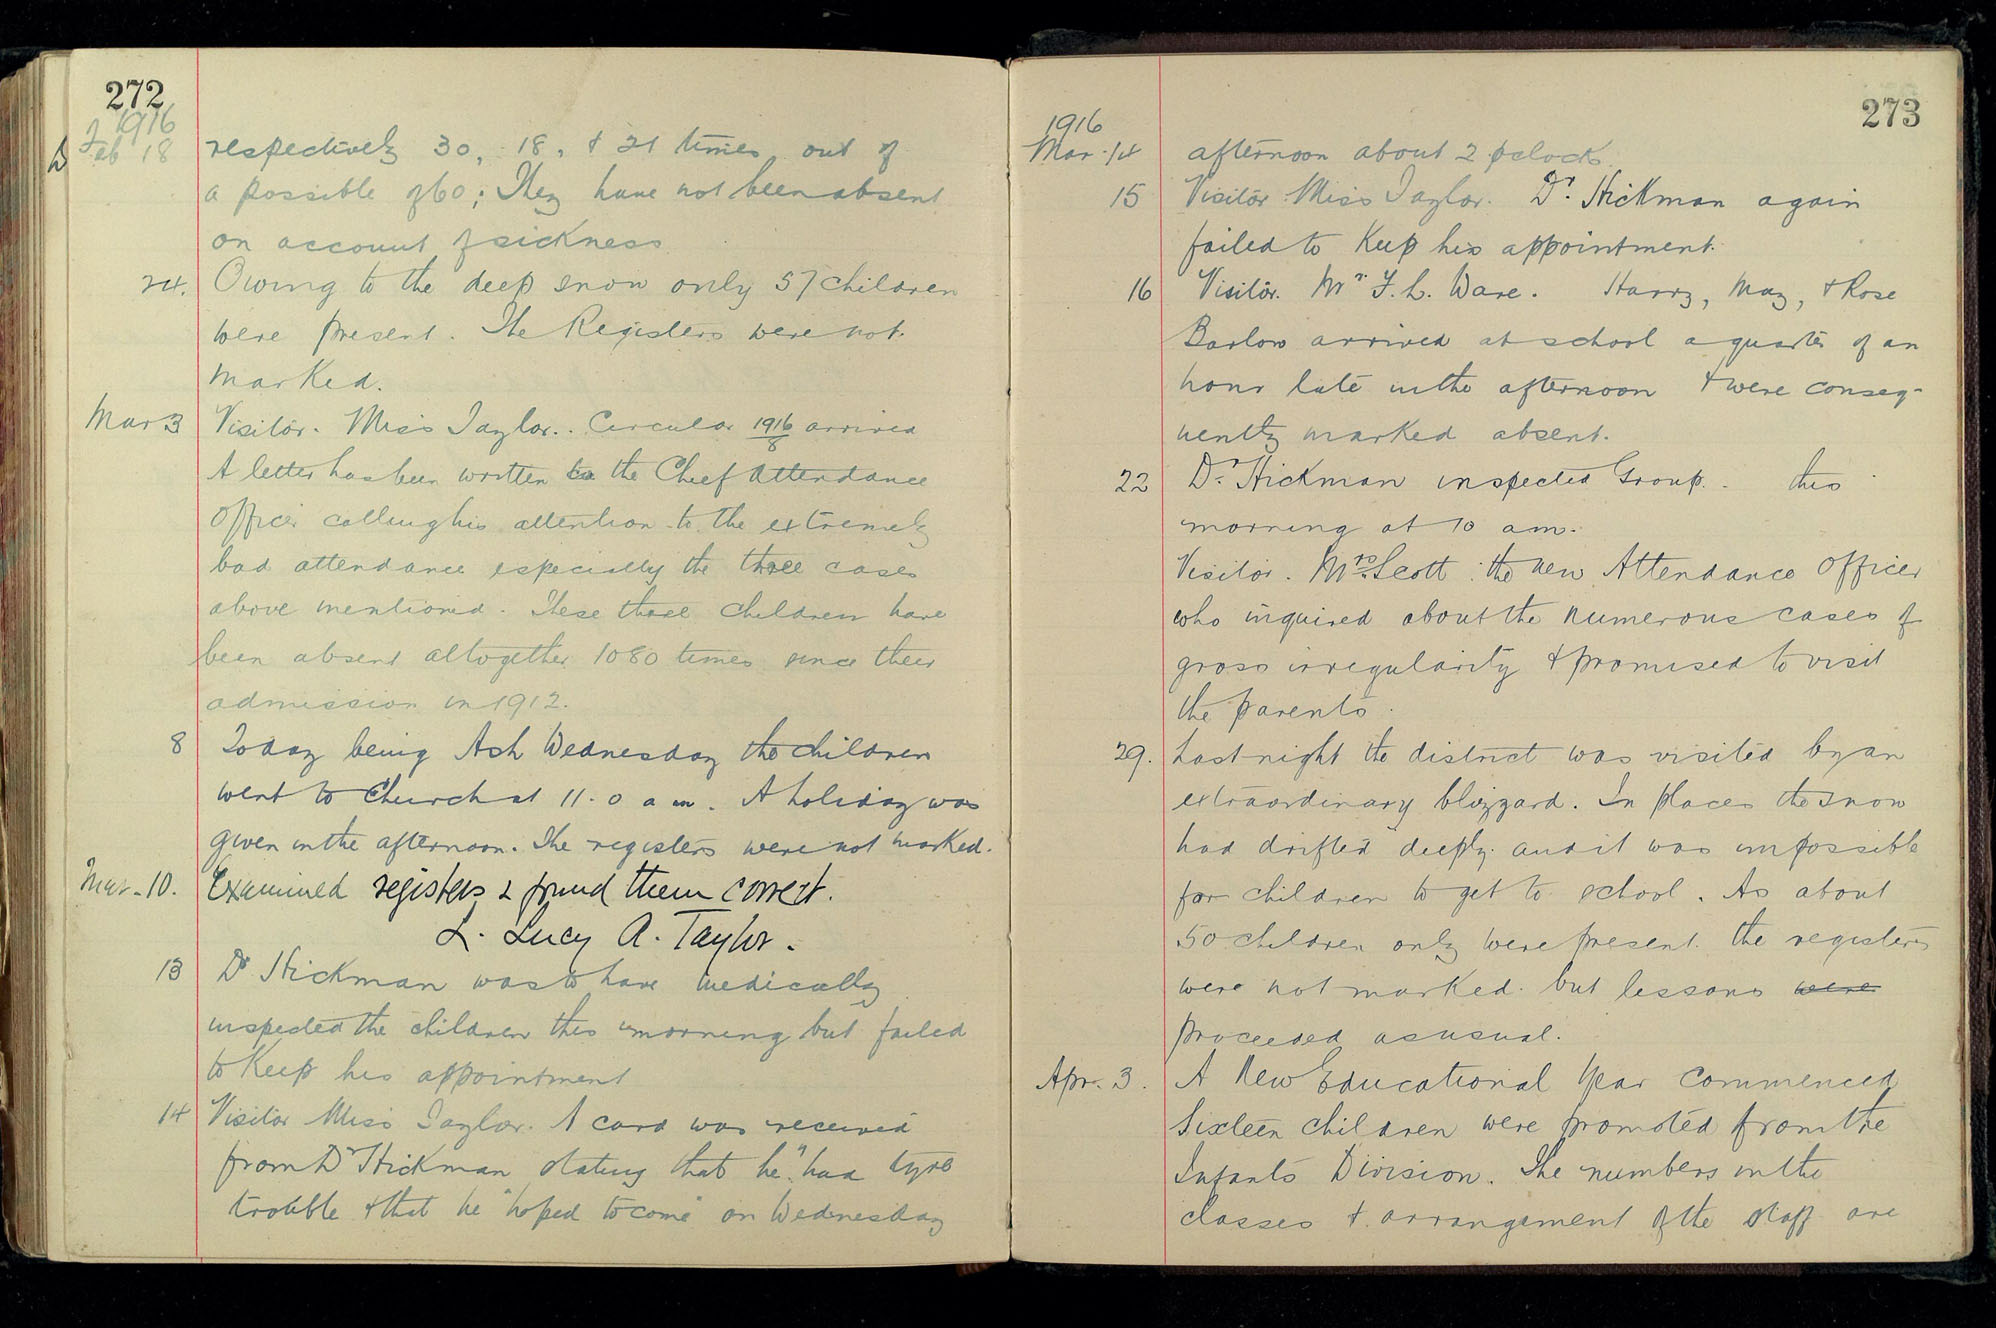 272
1916
Feb 18 respectively 30, 18, & 21 times out of
a possible of 60; They have not been absent
on account of sickness
24. Owing to the deep snow only 57 children
were present. The Registers were not
marked.
Mar 3 Visitor. Miss Taylor. Circular 1916/8 arrived
A letter has been written to the Chief Attendance
Officer calling his attention to the extremely
bad attendance especially the three cases
above mentioned. These three children have
been absent altogether 1080 times since their
admission in 1912.
8 Today being Ash Wednesday the children
went to Church at 11.0 a m. A holiday was
given in the afternoon. The registers were not marked.
Mar. 10. Examined registers & found them correct.
L. Lucy A. Taylor.
13 Dr Hickman was to have medically
inspected the children this morning but failed
to keep his appointment
14 Visitor Miss Taylor. A card was received
from Dr Hickman stating that he "had tyre
trouble & that he "hoped to come" on Wednesday
273
1916
Mar. 14 afternoon about 2 o'clock.
15 Visitor Miss Taylor. Dr. Hickman again
failed to keep his appointment.
16 Visitor. Mr F. L. Ware. Harry, May, & Rose
Barlow arrived at school a quarter of an
hour late in the afternoon & were conseq-
uently marked absent.
22 Dr. Hickman inspected Group. this
morning at 10 am.
Visitor. Mrs Scott the new Attendance Officer
who inquired about the numerous cases of
gross irregularity & promised to visit
the parents.
29. Last night the district was visited by an
extraordinary blizzard. In places the snow
had drifted deeply and it was impossible
for children to get to school. As about
50 children only were present the registers
were not marked but lessons were
proceeded as usual.
Apr. 3. A New Educational Year commenced
Sixteen children were promoted from the
Infants Division. The numbers in the
classes & arrangement of the staff are